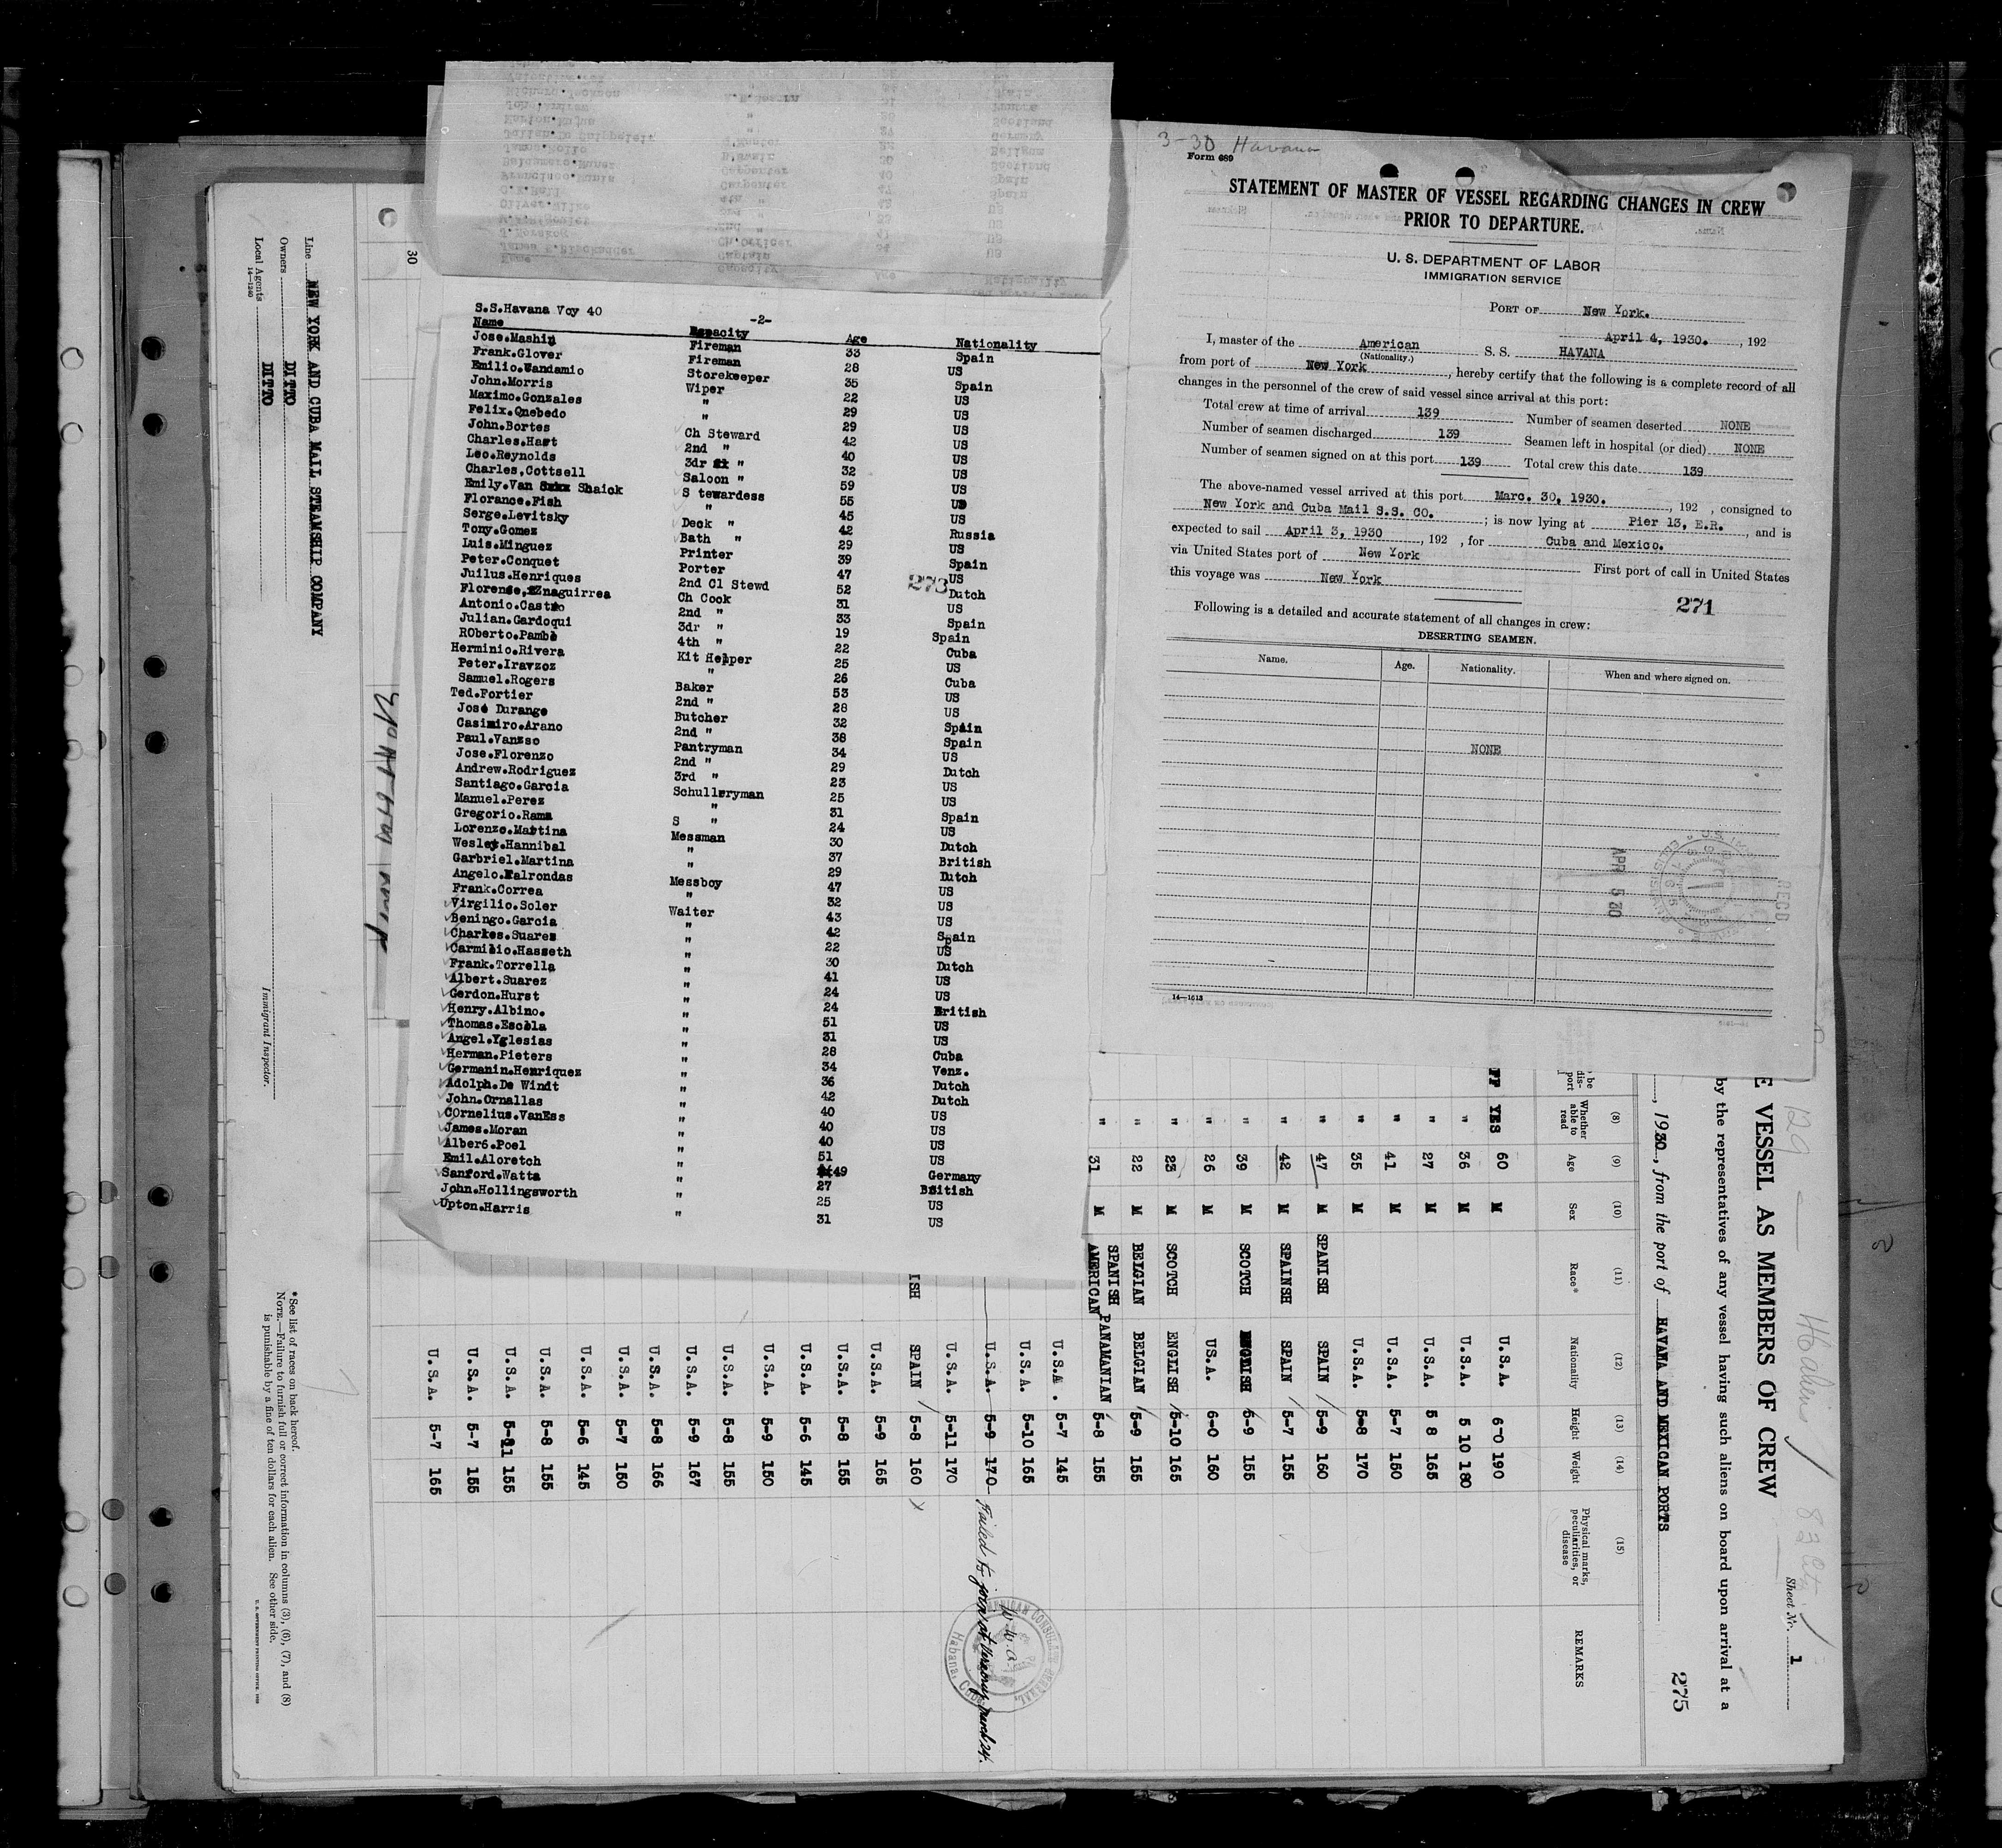 S.S.Havana Voy 40 -2-
Name Capacity Age Nationality
Jose.Mashin Fireman 33 Spain
Frank.Glover Fireman 28 US
Emilio.Wandamio Storekeeper 35 Spain
John.Morris Wiper 22 US
Maximo.Gonzales " 29 US
Felix.Quebedo " 29 US
John.Bortes Ch Steward 42 US
Charles.Hart 2nd " 40 US
Leo.Reynolds 3dr " 32 US
Charles,Cottsell Saloon " 59 US
Emily.Van Shaick S tewardess 55 US
Florance.Fish " 45 US
Serge.Levitsky Deck " 42 Russia
Tony.Gomez Bath " 29 US
Luis.Minguez Printer 39 Spain
Peter.Conquet Porter 47 US
Juilus.Henriques 2nd Cl Stewd 52 Dutch
273
Florense,Znaguirrea Ch Cook 31 US
Antonio.Castro 2nd " 33 Spain
Julian.Gardoqui 3dr " 19 Spain
ROberto.Pambe 4th " 22 Cuba
Herminio.Rivera Kit Helper 25 US
Peter.Iravzoz " 26 Cuba
Samuel.Rogers Baker 53 US
Ted.Fortier 2nd " 28 US
José Durange Butcher 32 Spain
Casimiro.Arano 2nd " 38 Spain
Paul.Vanzso Pantryman 34 US
Jose.Florenzo 2nd " 29 Dutch
Andrew.Rodriguez 3rd " 23 US
Santiago.Garcia Schulleryman 25 US
Manuel.Perez " 31 Spain
Gregorio.Rama S " 24 US
Lorenzo.Martina Messman 30 Dutch
Wesley.Hannibal " 37 British
Garbriel.Martina " 29 Dutch
Angelo.Malrondas Messboy 47 US
Frank.Correa " 32 US
Virgilio.Soler Waiter 43 US
Beningo.Garcia " 42 Spain
Charles.Suarez " 22 US
Carmilio.Hasseth " 30 Dutch
Frank.Torrella " 41 US
Albert.Suarez " 24 US
Gerdon.Hurst " 24 British
Henry.Albino. " 51 US
Thomas.Escola " 31 US
Angel.Yglesias " 28 Cuba
Herman.Pieters " 34 Venz.
Germanin.Henriquez " 36 Dutch
Adolph.De Windt " 42 Dutch
John.Ornallas " 40 US
COrnelius.VanEss " 40 US
James.Moran " 40 US
Alber6.Poel " 51 US
Emil.Aloretch " 49 Germany
Sanford.Watta " 27 British
John.Hollingsworth " 25 US
Upton.Harris " 31 US
3-30 Havana
Form 689
STATEMENT OF MASTER OF VESSEL REGARDING CHANGES IN CREW
PRIOR TO DEPARTURE.
U. S. DEPARTMENT OF LABOR
IMMIGRATION SERVICE
PORT OF New York.
April 4, 1930. , 192
I, master of the American S. S. HAVANA
(Nationality.)
from port of New York , hereby certify that the following is a complete record of all
changes in the personnel of the crew of said vessel since arrival at this port:
Total crew at time of arrival 139 Number of seamen deserted NONE
Number of seamen discharged 139 Seamen left in hospital (or died) NONE
Number of seamen signed on at this port 139 Total crew this date 139
The above-named vessel arrived at this port Marc. 30, 1930. , 192 , consigned to
New York and Cuba Mail S.S. CO. ; is now lying at Pier 13, E.R. , and is
expected to sail April 3, 1930 , 192 , for Cuba and Mexico.
via United States port of New York First port of call in United States
this voyage was New York
271
Following is a detailed and accurate statement of all changes in crew:
DESERTING SEAMEN.
Name. Age. Nationality. When and where signed on.
NONE
APR 5 30
RECD
14—1613
Sheet No. 1
E VESSEL AS MEMBERS OF CREW
by the representatives of any vessel having such aliens on board upon arrival at a
, 1930, from the port of HAVANA AND MEXICAN PORTS
275
(8) (9) (10) (11) (12) (13) (14) (15)
Whether able to read Age Sex Race* Nationality Height Weight Physical marks, peculiarities, or disease REMARKS
YES 60 M U.S.A. 6-0 190
" 36 M U.S.A. 5 10 180
" 27 M U.S.A. 5 8 165
" 41 M U.S.A. 5-7 150
" 35 M U.S.A. 5-8 170
" 47 M SPANISH SPAIN 5-9 160
" 42 M SPAINSH SPAIN 5-7 155
" 39 M SCOTCH ENGLISH 5-9 155
" 26 M US.A. 6-0 160
" 23 M SCOTCH ENGLISH 5-10 165
" 22 M BELGIAN BELGIAN 5-9 155
" 31 M SPANISH AMERICAN PANAMANIAN 5-8 155
U.S.A. 5-7 145
U.S.A. 5-10 165
U.S.A. 5-9 170 Failed to join at Veracruz March 24.
U.S.A. 5-11 170
ISH SPAIN 5-8 160
U.S.A. 5-9 165
U.S.A. 5-8 155
U.S.A. 5-6 145
U.S.A. 5-9 150
U.S.A. 5-8 155
U.S.A. 5-9 167
U.S.A. 5-8 166
U.S.A. 5-7 150
U.S.A. 5-6 145
U.S.A. 5-8 155
U.S.A. 5-11 155
U.S.A. 5-7 155
U.S.A. 5-7 165
AMERICAN CONSULATE GENERAL
Habana, Cuba
30
Line NEW YORK AND CUBA MAIL STEAMSHIP COMPANY
Owners DITTO
Local Agents DITTO
14—1240
Immigrant Inspector.
* See list of races on back hereof.
NOTE.—Failure to furnish full or correct information in columns (3), (6), (7), and (8)
is punishable by a fine of ten dollars for each alien. See other side.